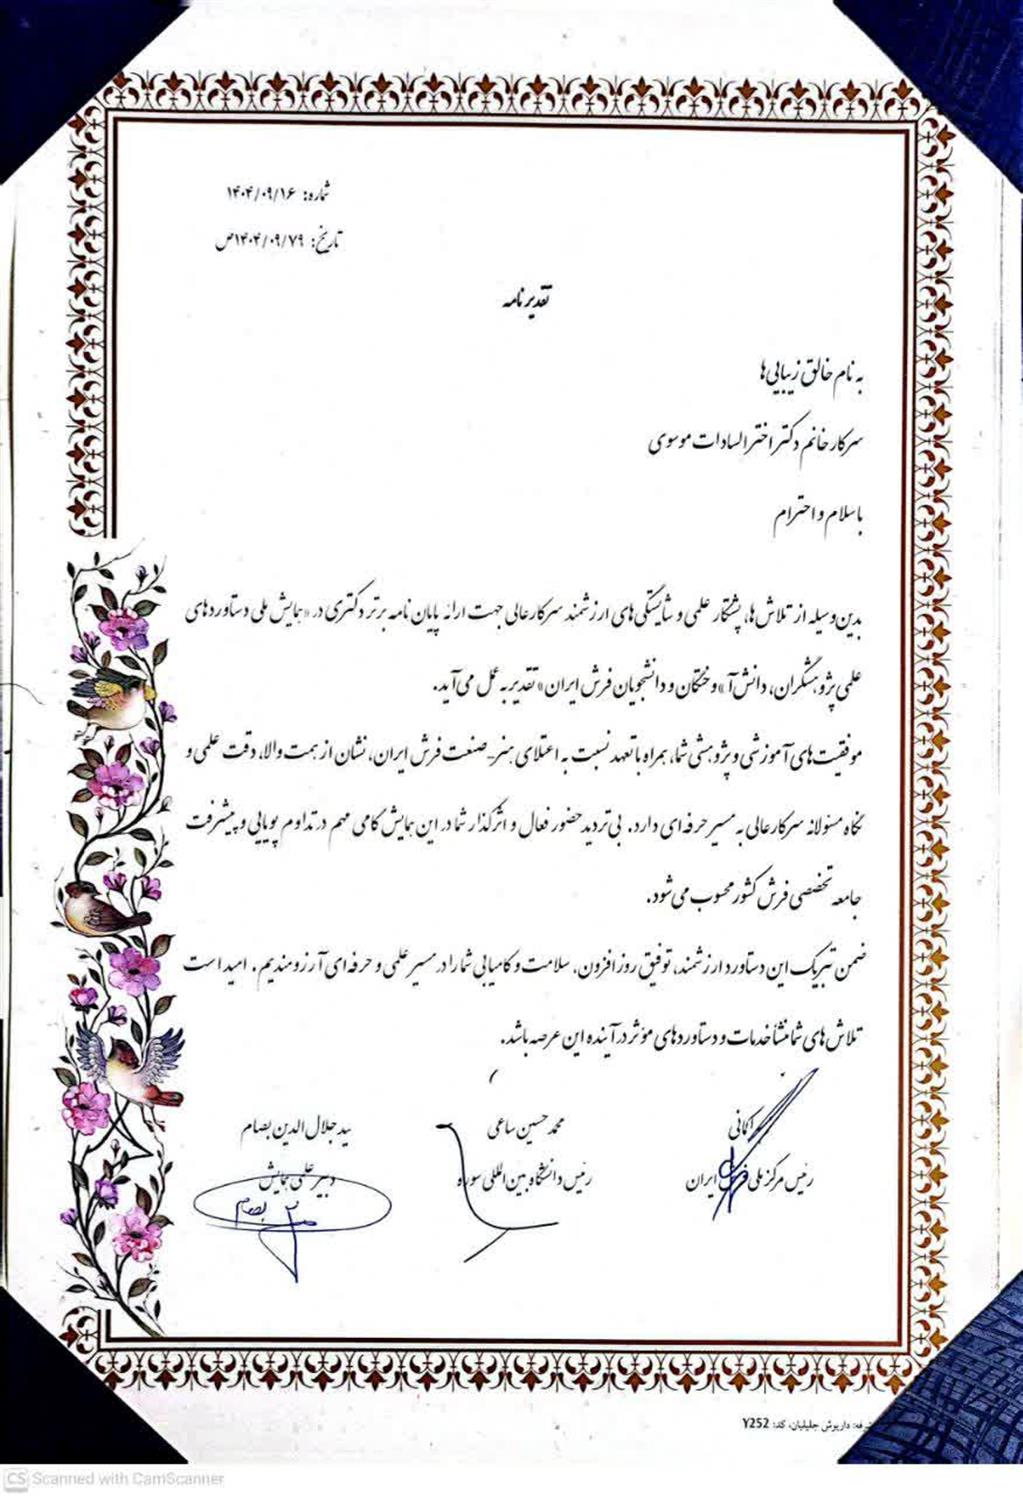 شماره: ۱۴۰۴/۰۹/۱۶
تاریخ: ۱۴۰۴/۰۹/۷۹ص
تقدیرنامه
به نام خالق زیبایی‌ها
سرکار خانم دکتر اخترالسادات موسوی
با سلام و احترام
بدین وسیله از تلاش‌ها، پشتکار علمی و شایستگی‌های ارزشمند سرکارعالی جهت ارائه پایان نامه برتر دکتری در «همایش ملی دستاوردهای
علمی پژوهشگران، دانش‌آ»وختگان و دانشجویان فرش ایران» تقدیر به عمل می‌آید.
موفقیت‌های آموزشی و پژوهشی شما، همراه با تعهد نسبت به اعتلای هنر-صنعت فرش ایران، نشان از همت والا، دقت علمی و
نگاه مسئولانه سرکارعالی به مسیر حرفه‌ای دارد. بی‌تردید حضور فعال و اثرگذار شما در این همایش گامی مهم در تداوم پویایی و پیشرفت
جامعه تخصصی فرش کشور محسوب می‌شود.
ضمن تبریک این دستاورد ارزشمند، توفیق روزافزون، سلامت و کامیابی شما را در مسیر علمی و حرفه‌ای آرزومندیم. امید است
تلاش‌های شما منشأ خدمات و دستاوردهای مؤثر در آینده این عرصه باشد.
کمانی محمدحسین ساعی سیدجلال الدین بصام
رئیس مرکز ملی فرش ایران رئیس دانشگاه بین المللی سوره دبیر علمی همایش
بصام
داریوش جلیلیان، کد: Y252
CS Scanned with CamScanner